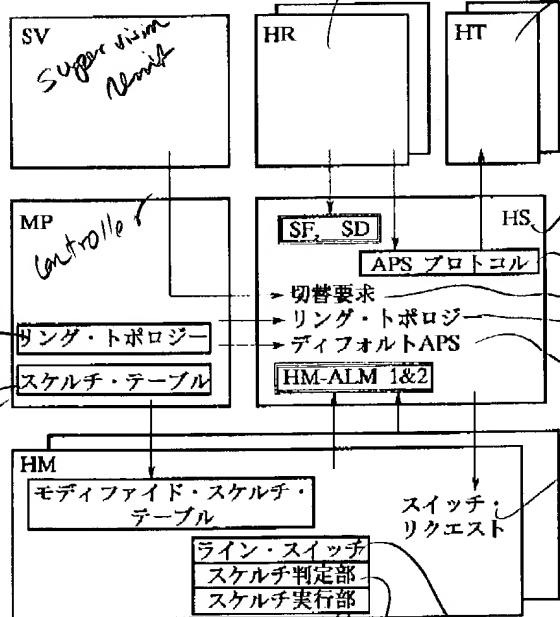 SV
Supervision
Unit
HR
HT
MP
Controller
リング・トポロジー
スケルチ・テーブル
HS
SF, SD
APS プロトコル
切替要求
リング・トポロジー
ディフォルトAPS
HM-ALM 1&2
HM
モディファイド・スケルチ・
テーブル
スイッチ・
リクエスト
ライン・スイッチ
スケルチ判定部
スケルチ実行部